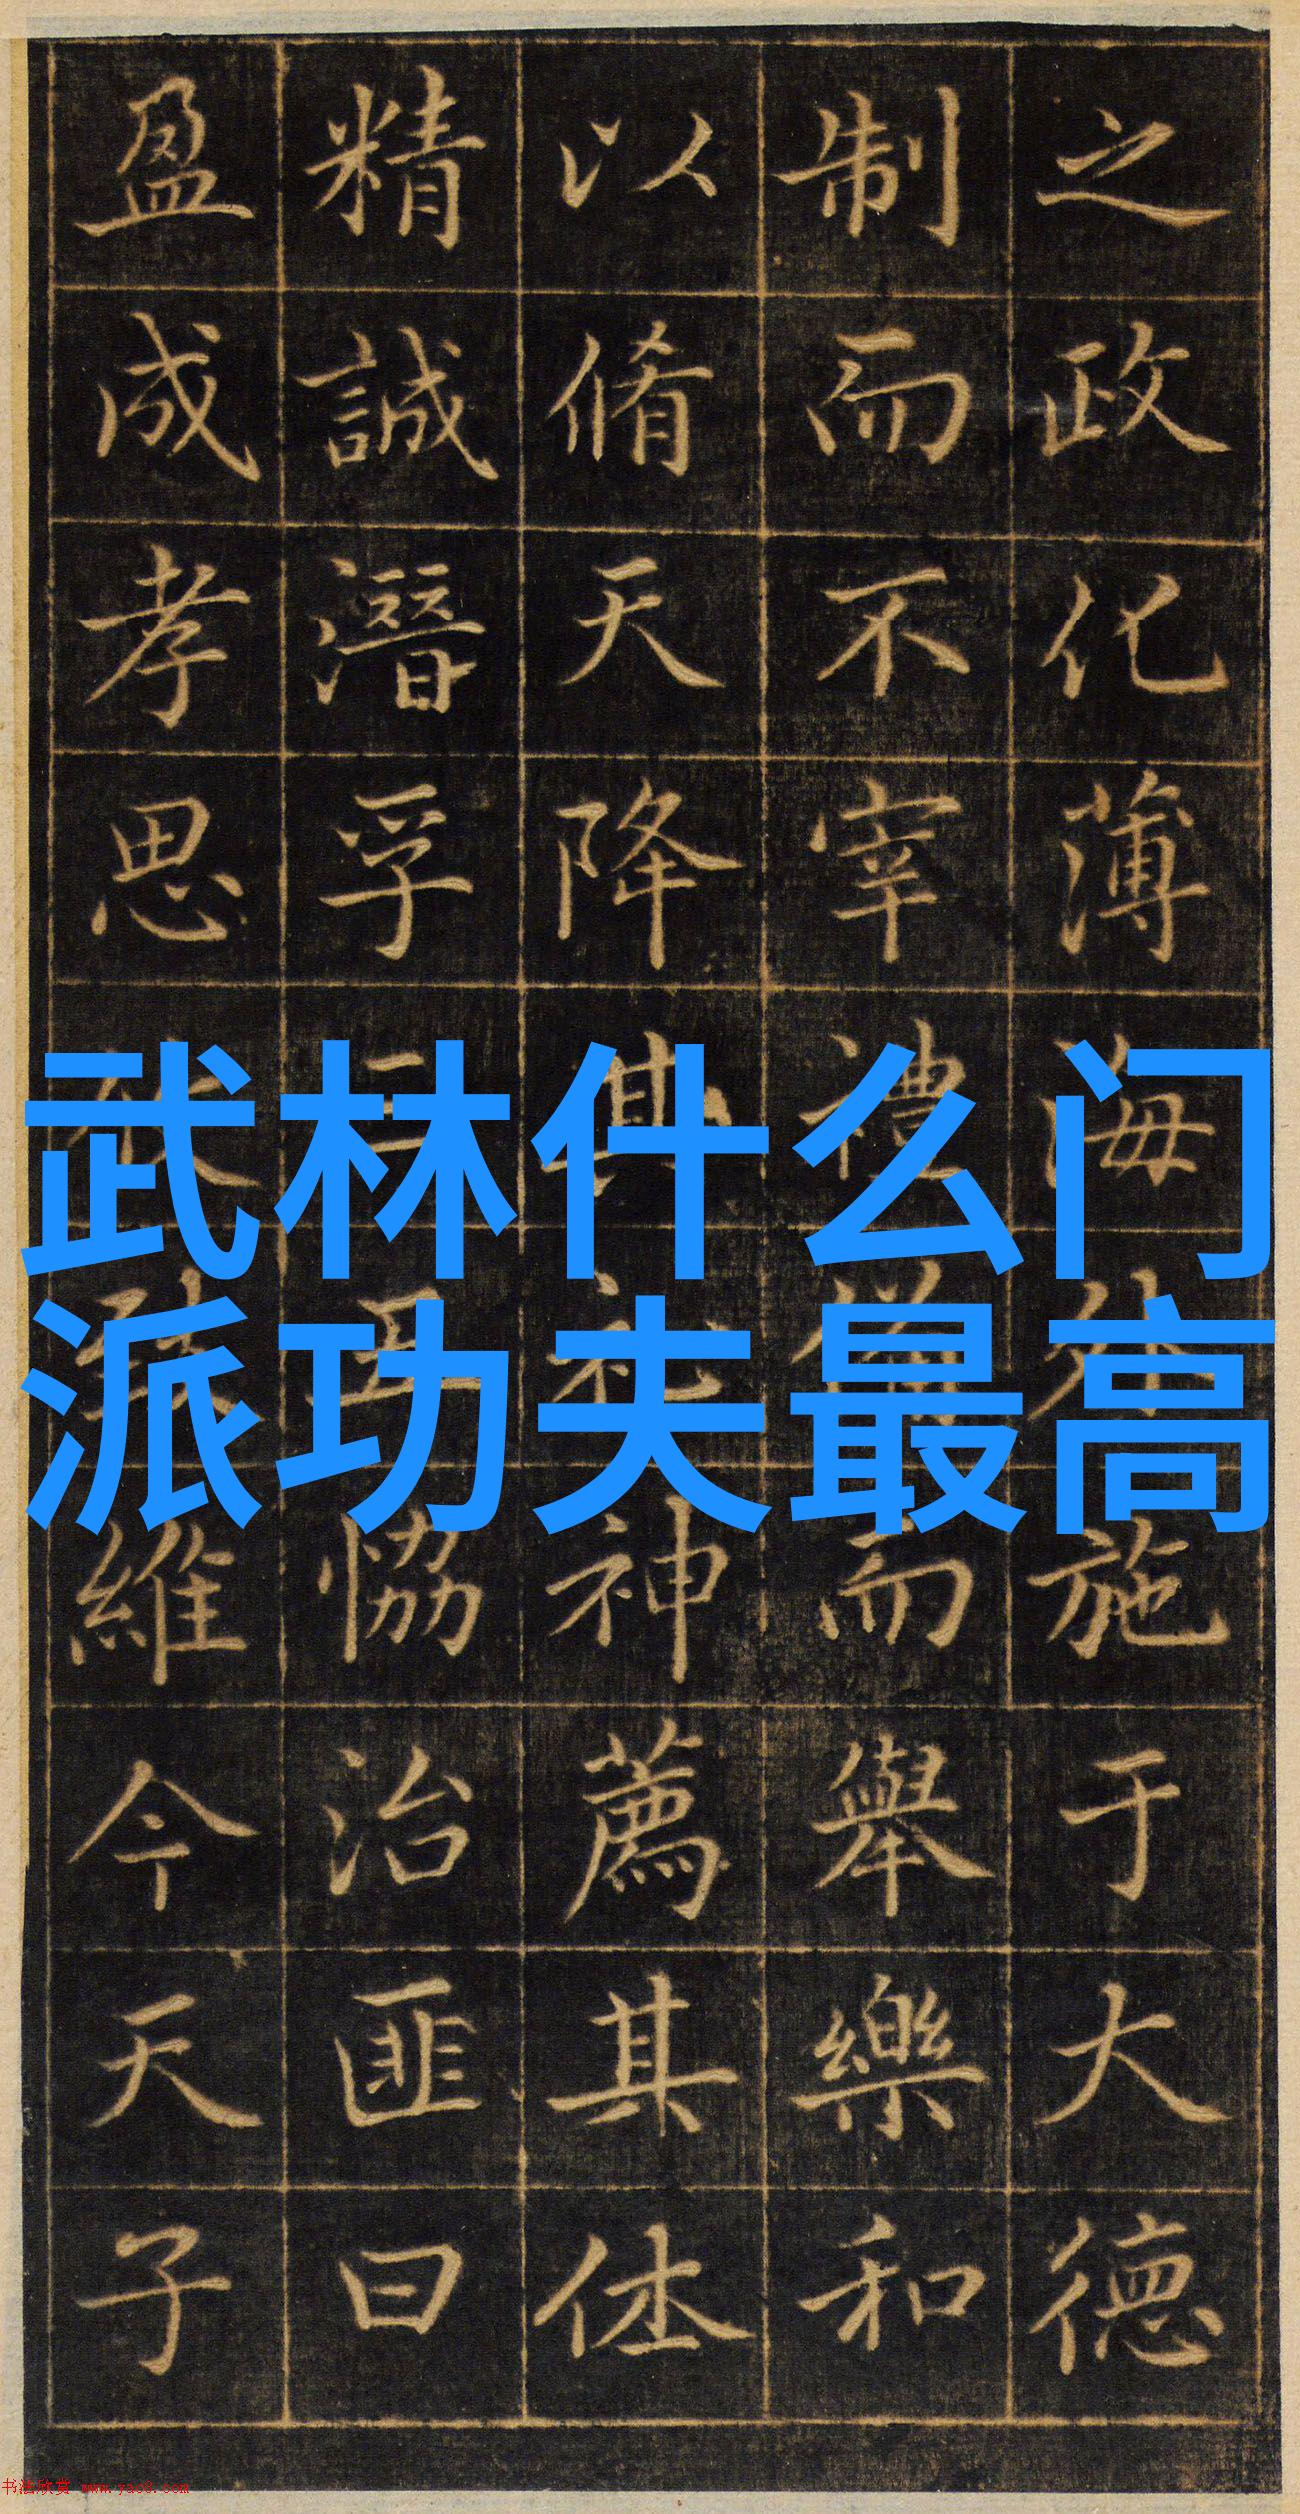 之政化薄海外施于大德
制而不宰禮備而舉樂和
以脩天降其祀神薦其佳
精誠潛孚三
恊治匪曰
盈成孝思
維今天子
武林什么门
派功夫最高
书法欣赏 www.yac8.com